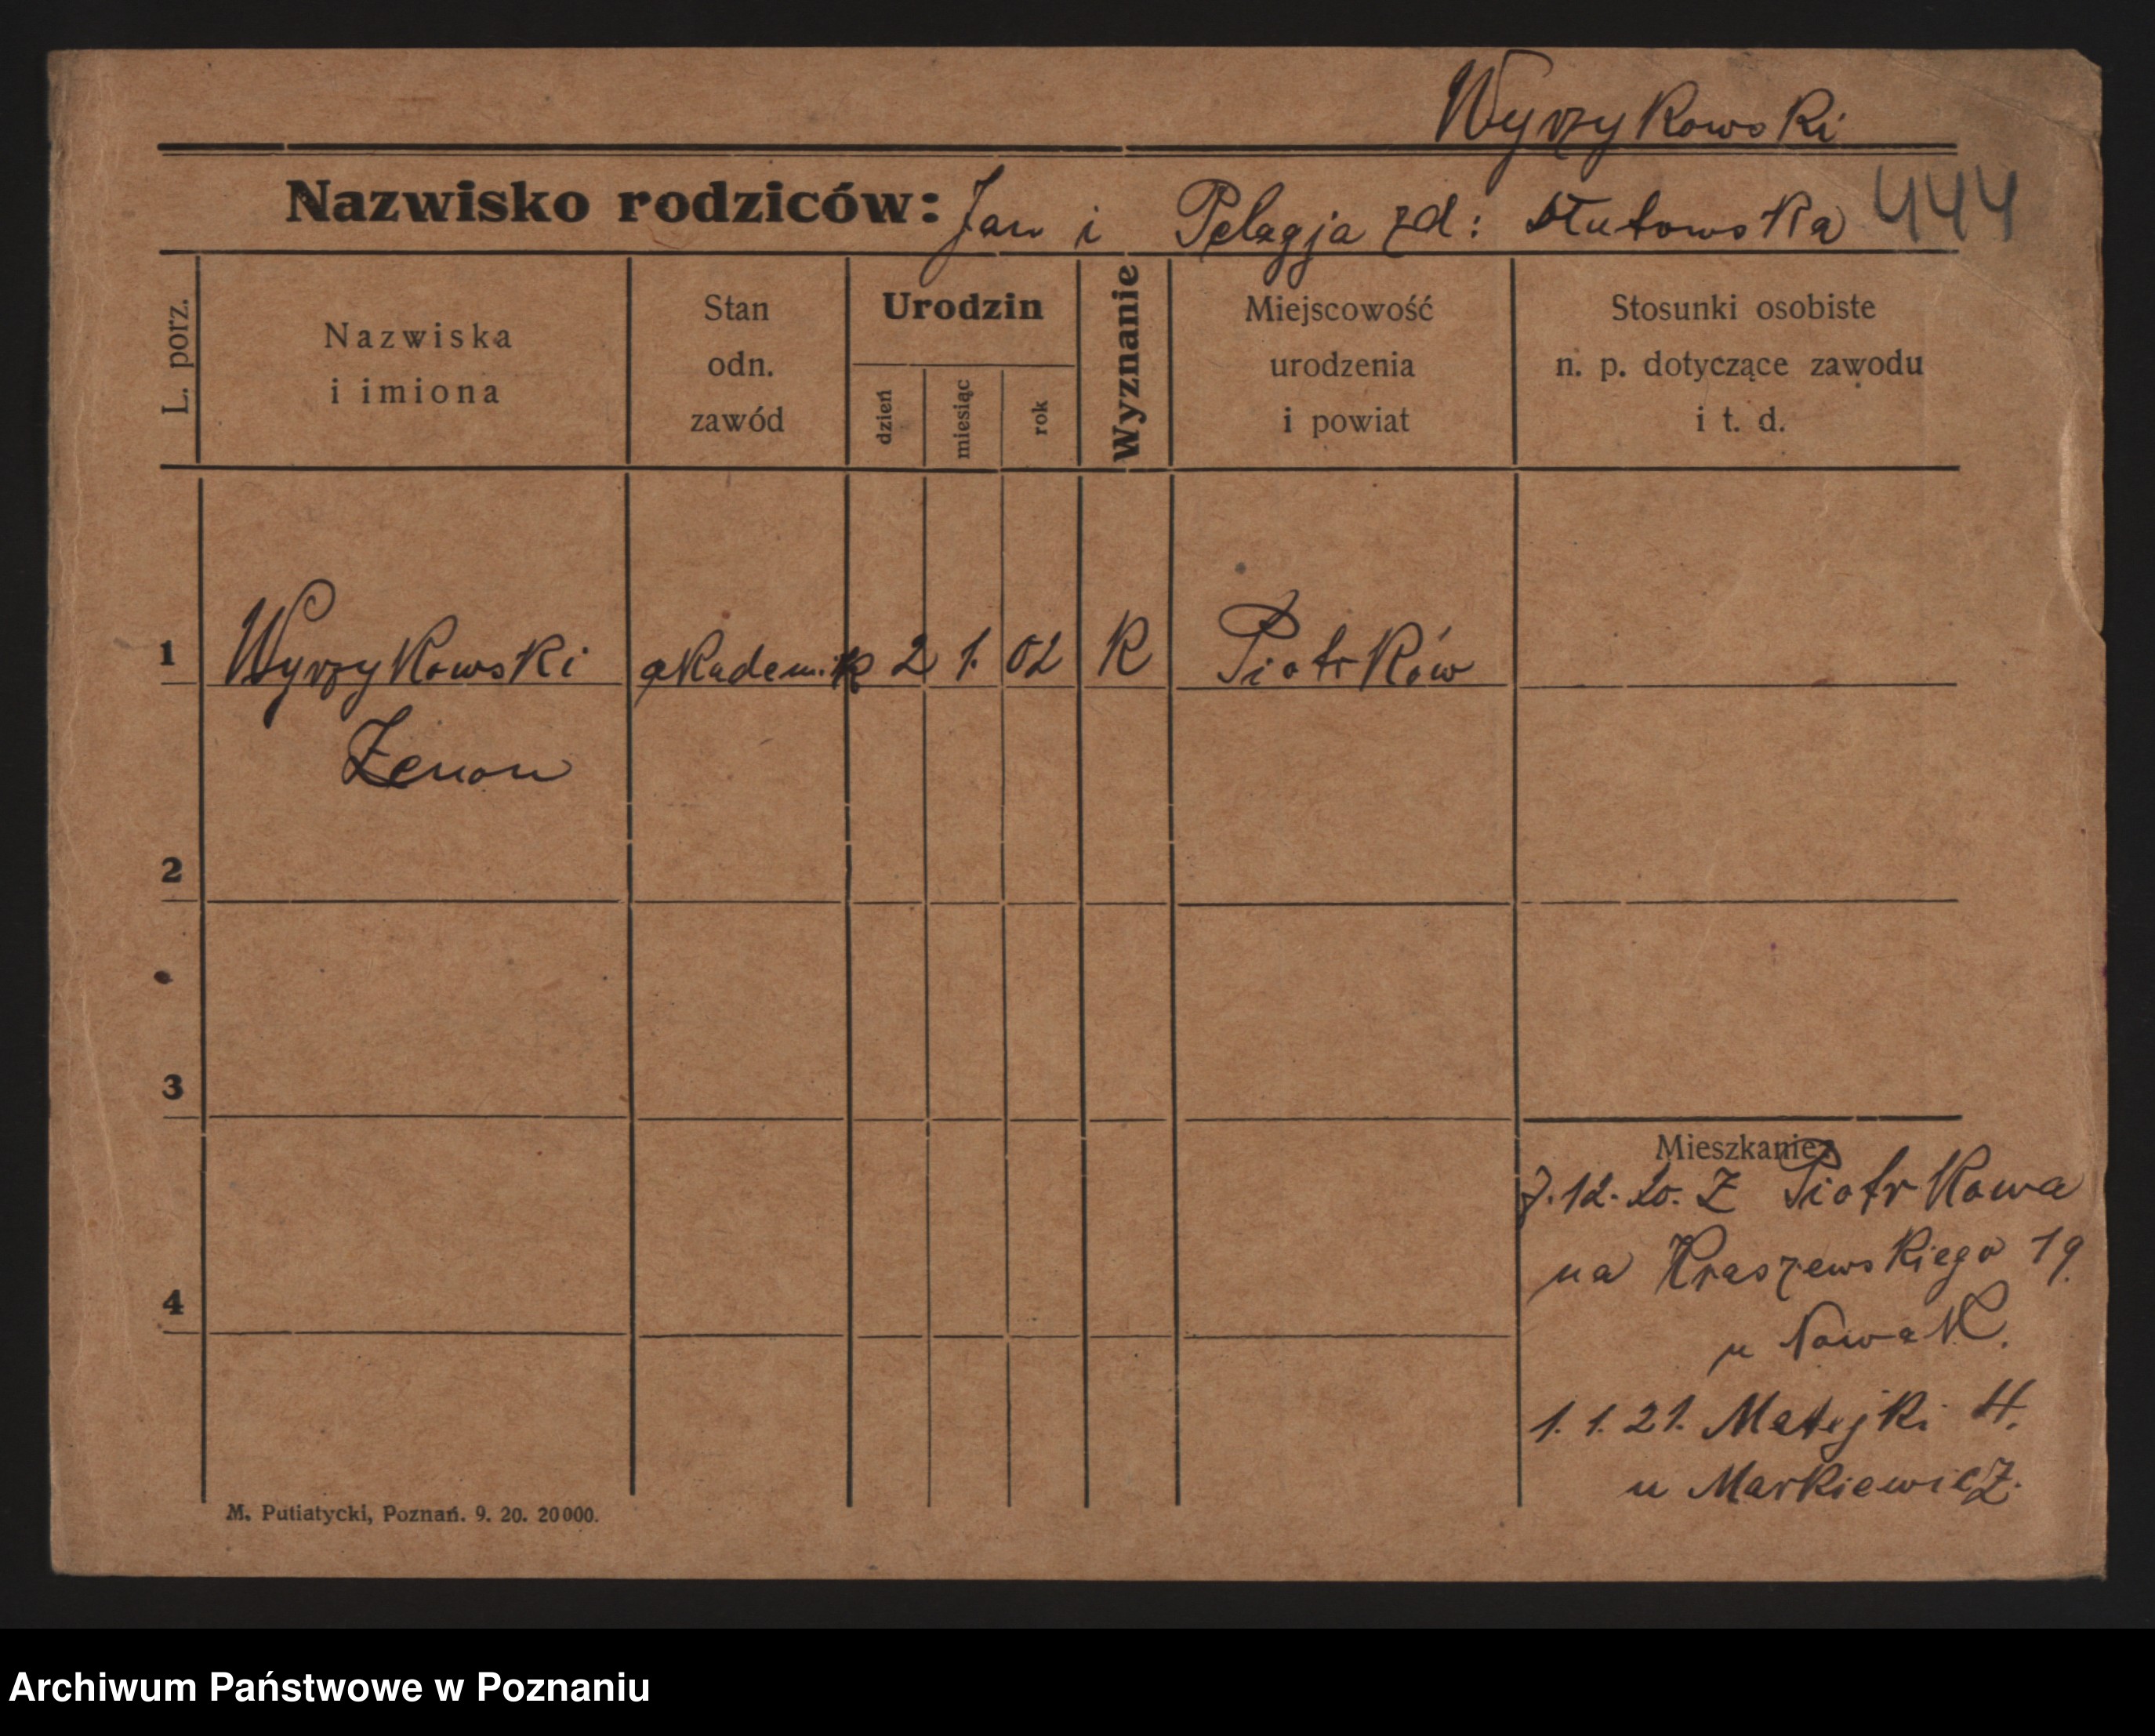 Wyrzykowski
Nazwisko rodziców: Jan i Pelagja zd: Dłutowska 444
L. porz.
Nazwiska i imiona
Stan odn. zawód
Urodzin
dzień miesiąc rok
Wyznanie
Miejscowość urodzenia i powiat
Stosunki osobiste n. p. dotyczące zawodu i t. d.
1 Wyrzykowski akademik 2 1. 02 K Piotrków
Zenon
2
3
Mieszkanie
7.12.20. Z Piotrkowa
na Kraszewskiego 19
4
u Nowak.
1. 1. 21. Matejki 4.
u Markiewicz.
M. Putiatycki, Poznań. 9. 20. 20000.
Archiwum Państwowe w Poznaniu